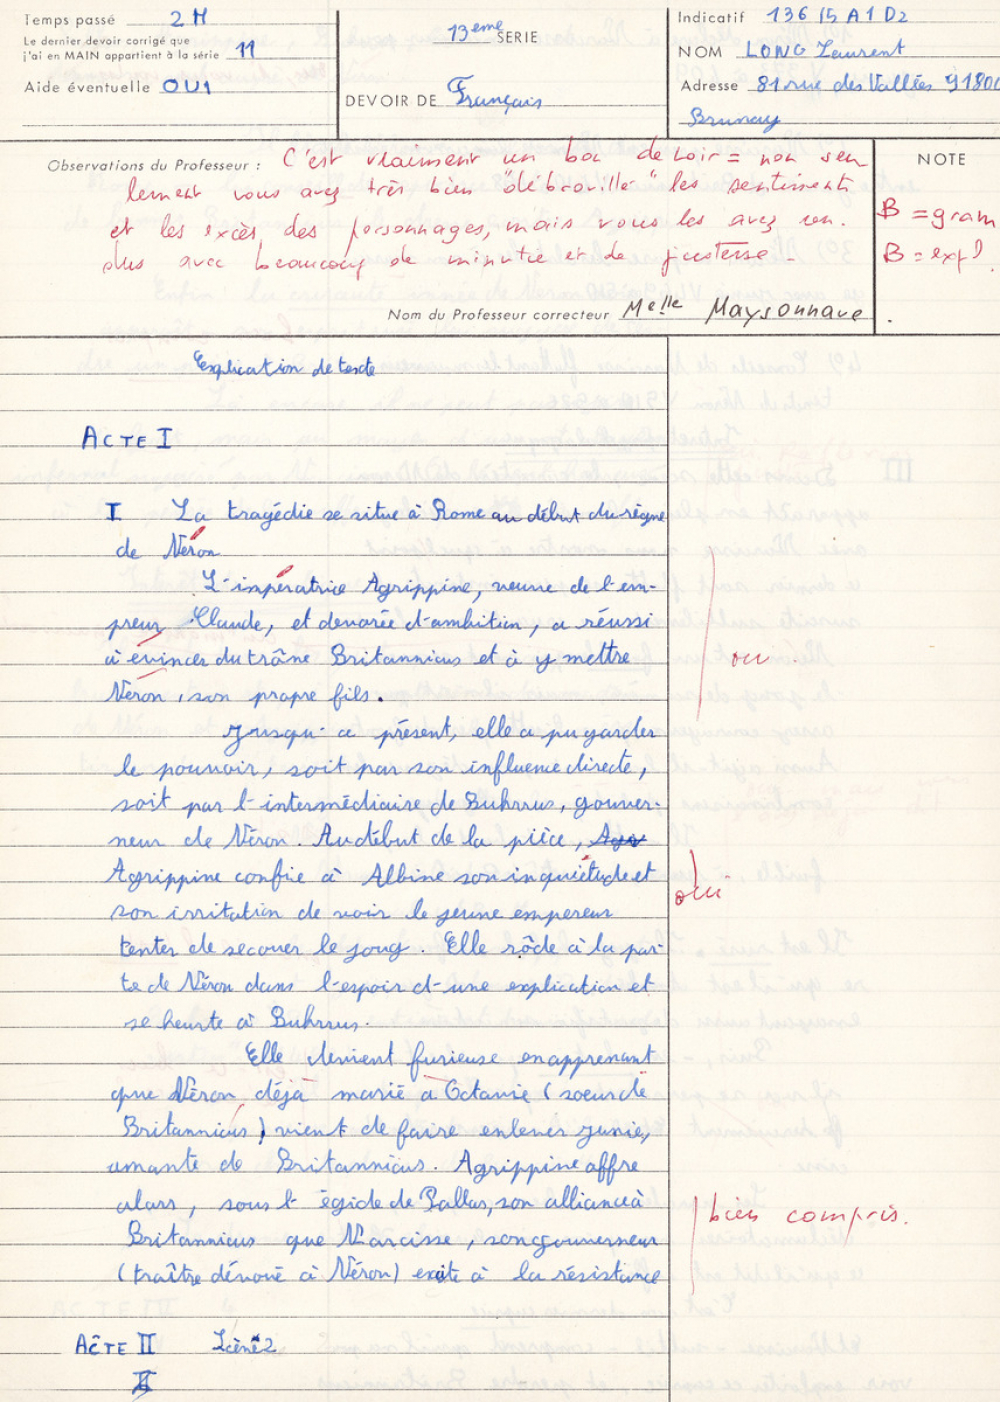 Temps passé 2 H
Le dernier devoir corrigé que
j'ai en MAIN appartient à la série 11
Aide éventuelle OUI
13eme SERIE
DEVOIR DE Français
Indicatif 136 15 A1 D2
NOM LONG Laurent
Adresse 81 rue des Vallées 91800
Brunoy
Observations du Professeur : C'est vraiment un bon devoir = non seu
lement vous avez très bien "débrouillé" les sentiments
et les excès des personnages, mais vous les avez ren.
dus avec beaucoup de minutie et de justesse -
NOTE
B = gram
B = expl.
Nom du Professeur correcteur Melle Maysonnave
Explication de texte
ACTE I
I La tragédie se situe à Rome au début du règne
de Néron
L'impératrice Agrippine, veuve de l'em-
preur Claude, et dévorée d'ambition, a réussi
à évincer du trône Britannicus et à y mettre
Néron, son propre fils.
oui
Jusqu'à présent, elle a pu garder
le pouvoir, soit par son influence directe,
soit par l'intermédiaire de Buhrrus, gouver-
neur de Néron. Au début de la pièce,
Agrippine confie à Albine son inquiétude et
oui
son irritation de voir le jeune empereur
tenter de secouer le joug. Elle rôde à la por-
te de Néron dans l'espoir d'une explication et
se heurte à Buhrrus.
Elle devient furieuse en apprenant
que Néron, déjà marié à Octavie (soeur de
Britannicus) vient de faire enlever Junie,
amante de Britannicus. Agrippine offre
alors, sous l'égide de Pallas, son alliance à
bien compris.
Britannicus que Narcisse, son gouverneur
(traître dévoué à Néron) excite à la résistance
ACTE II Scène 2
II